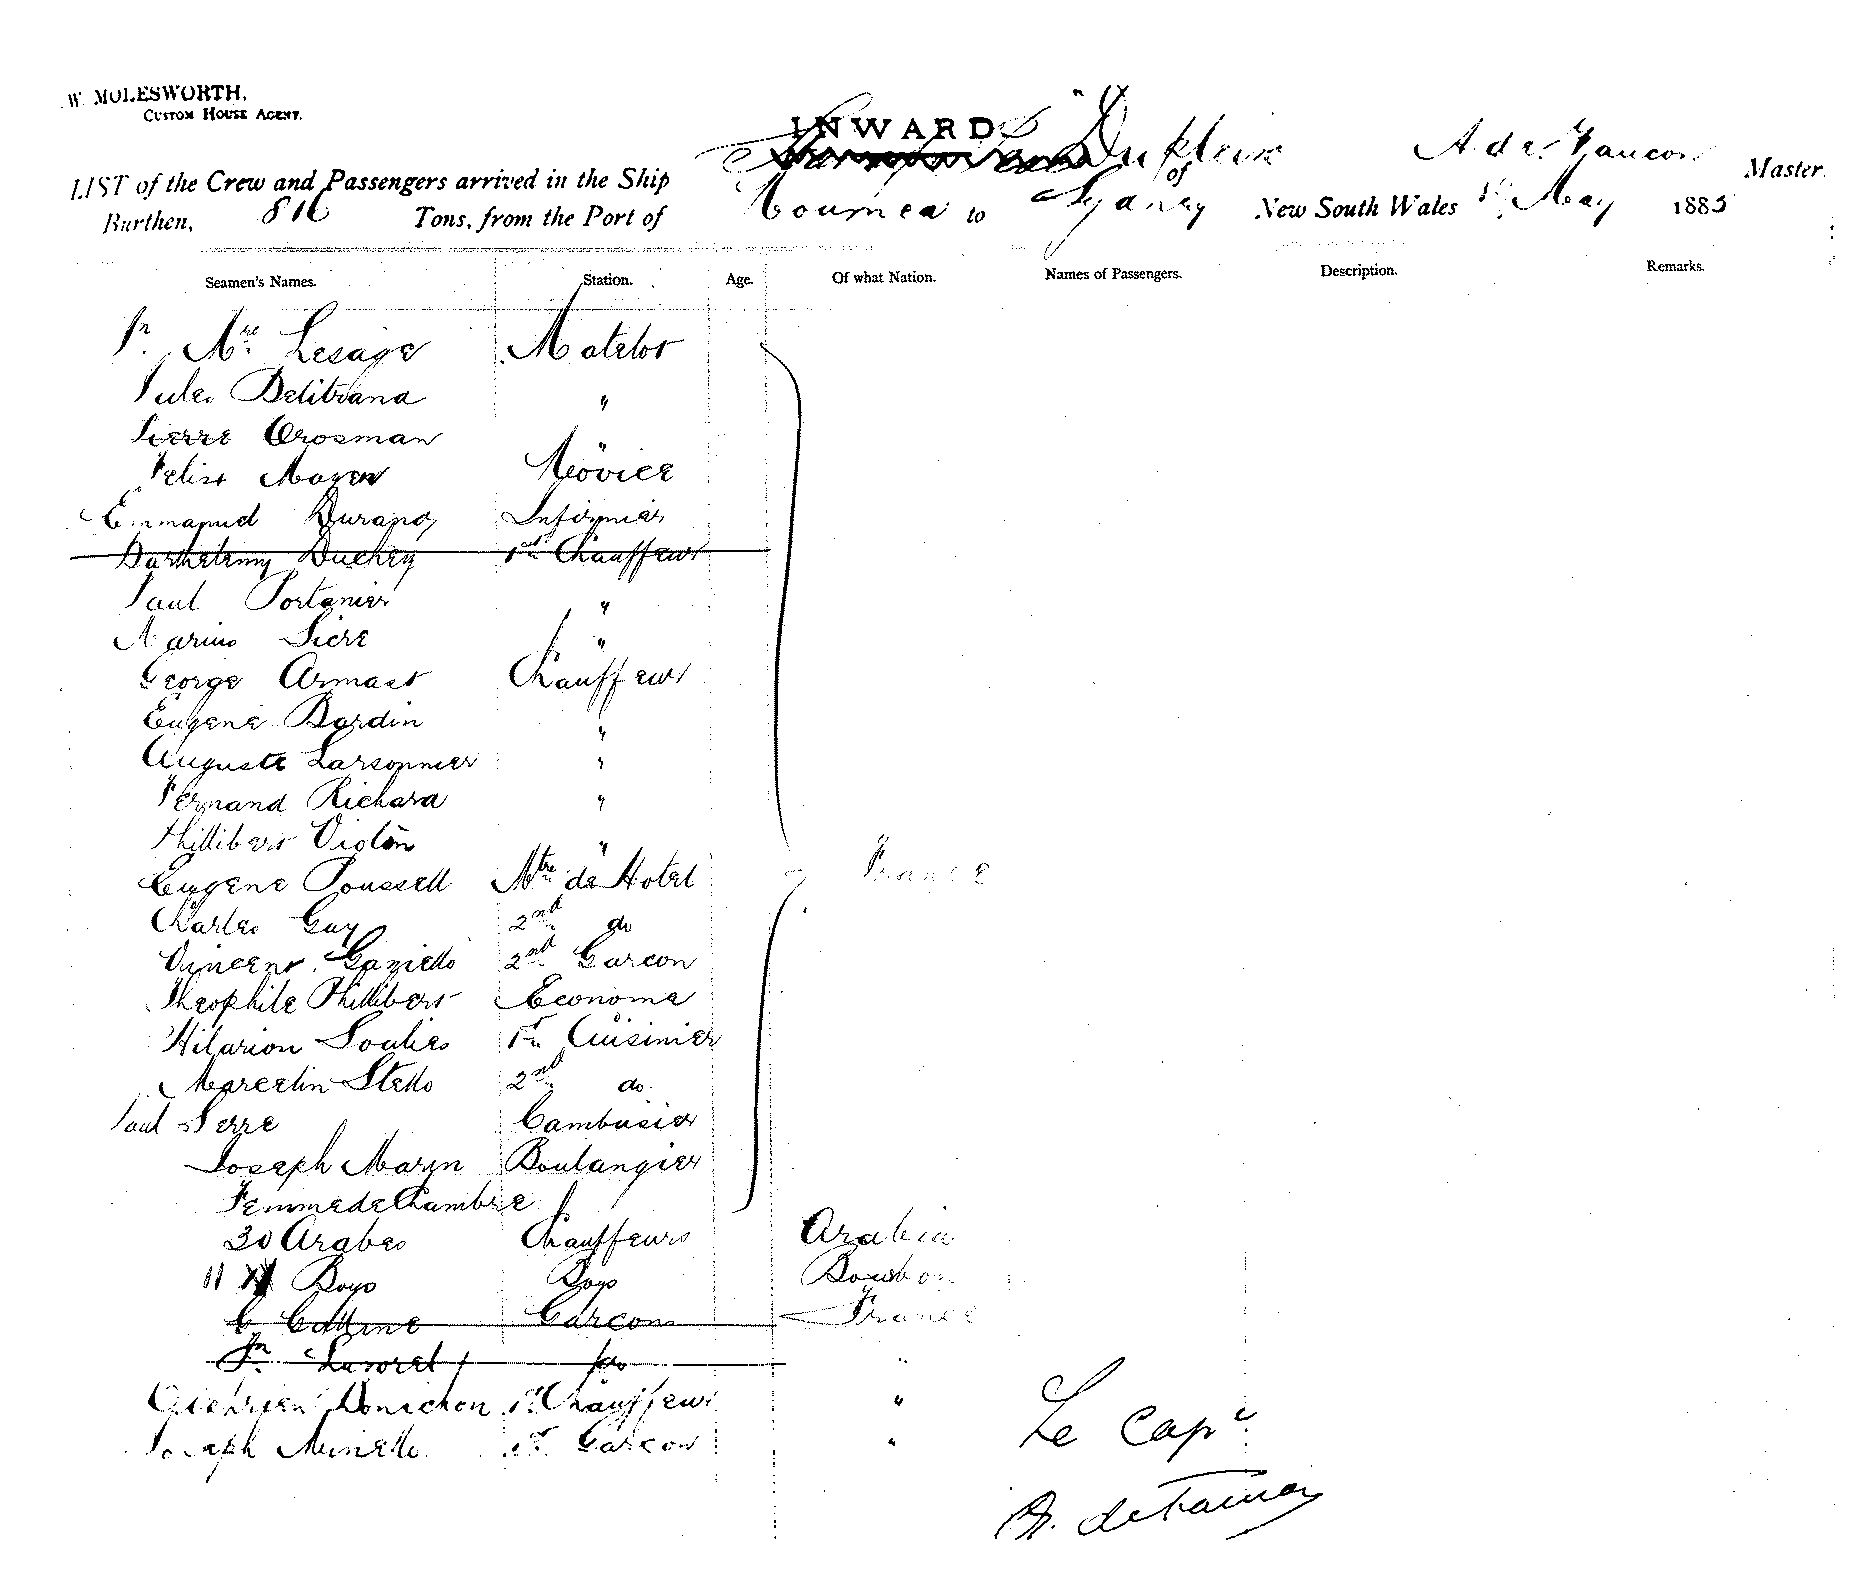 W. MOLESWORTH,
CUSTOM HOUSE AGENT.
INWARD.
LIST of the Crew and Passengers arrived in the Ship "Dupleix of A de Faucon Master.
Burthen, 816 Tons, from the Port of Noumea to Sydney New South Wales 1st May 1885
Seamen's Names. Station. Age. Of what Nation. Names of Passengers. Description. Remarks.
Jn. Mre Lesage Matelot
Jules "
Pierre Crosman "
Felix Mayen Novice
Emmanuel Durand Infirmier
Barthelemy Duchey 1st Chauffeur
Paul Portanier "
Marius Siere "
George Armast Chauffeur
Eugene Bardin "
Auguste Larsonnier "
Fernand Richard "
Phillibert Violon "
Eugene Poussell Mtre de Hotel France
Charles Guy 2nd do
Vincent Gaziello 2nd Garcon
Theophile Phillibert Econome
Hilarion Soulies 1st Cuisinier
Marcelin Stello 2nd do.
Paul Serre Cambusier
Joseph Marin Boulangier
Femme de Chambre
30 Arabes Chauffeurs Arabia
11 Boys Boys Bourbon
C Garcon France
Jn. do "
Donichon 1st Chauffeur "
Joseph Minello 1st Garcon "
Le Cape
A. de Faucon